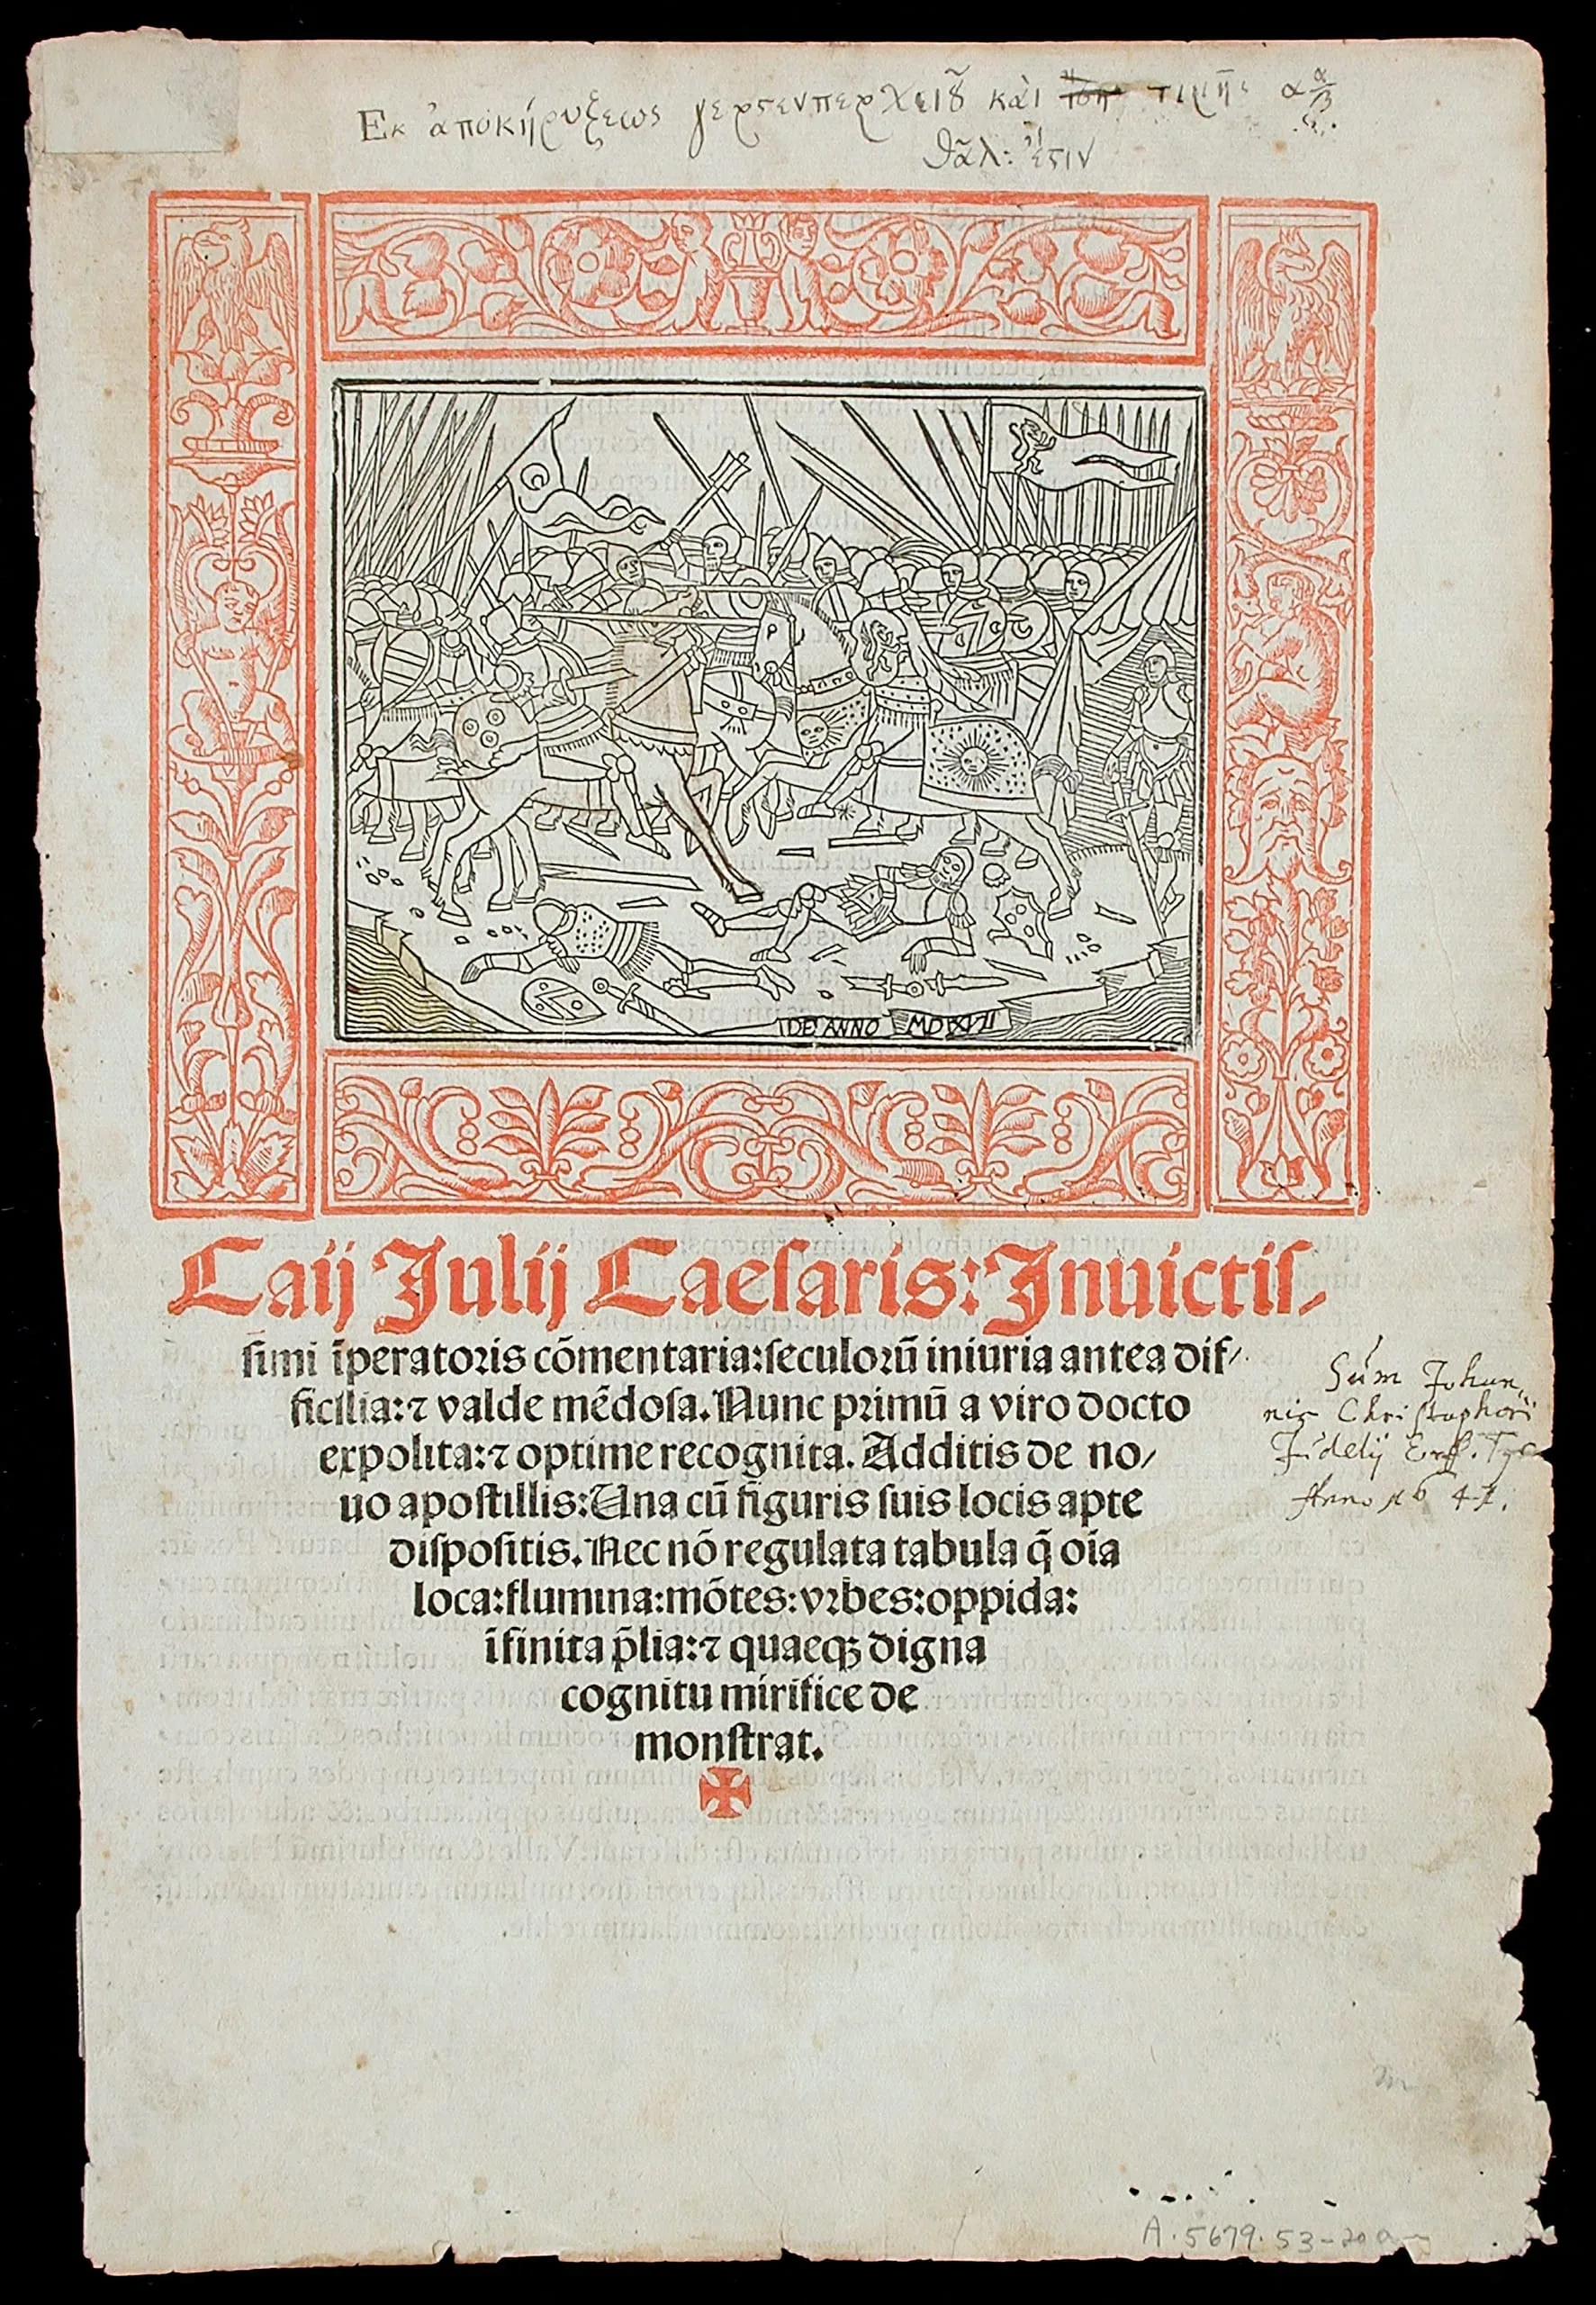 Εκ ἀποκηρύξεως γερσενπερχειȣ̃ καὶ τιμῆς
θᾶλ: ἐστιν
DE ANNO MDXVII
Caij Julij Caeſaris: Inuictiſ⸗
ſimi īperatoris cōmentaria: ſeculorū iniuria antea dif⸗
ficilia: ⁊ valde mēdoſa. Nunc primū a viro docto
expolita: ⁊ optime recognita. Additis de no⸗
uo apoſtillis: Una cū figuris ſuis locis apte
diſpoſitis. Nec nō regulata tabula q̄ oīa
loca: flumina: mōtes: vrbes: oppida:
īfinita p̄lia: ⁊ quaeqꝫ digna
cognitu mirifice de
monſtrat.
Sum Johan⸗
nis Christophori
Fidelij Erf.
Anno 1641.
A. 5679. 53-20